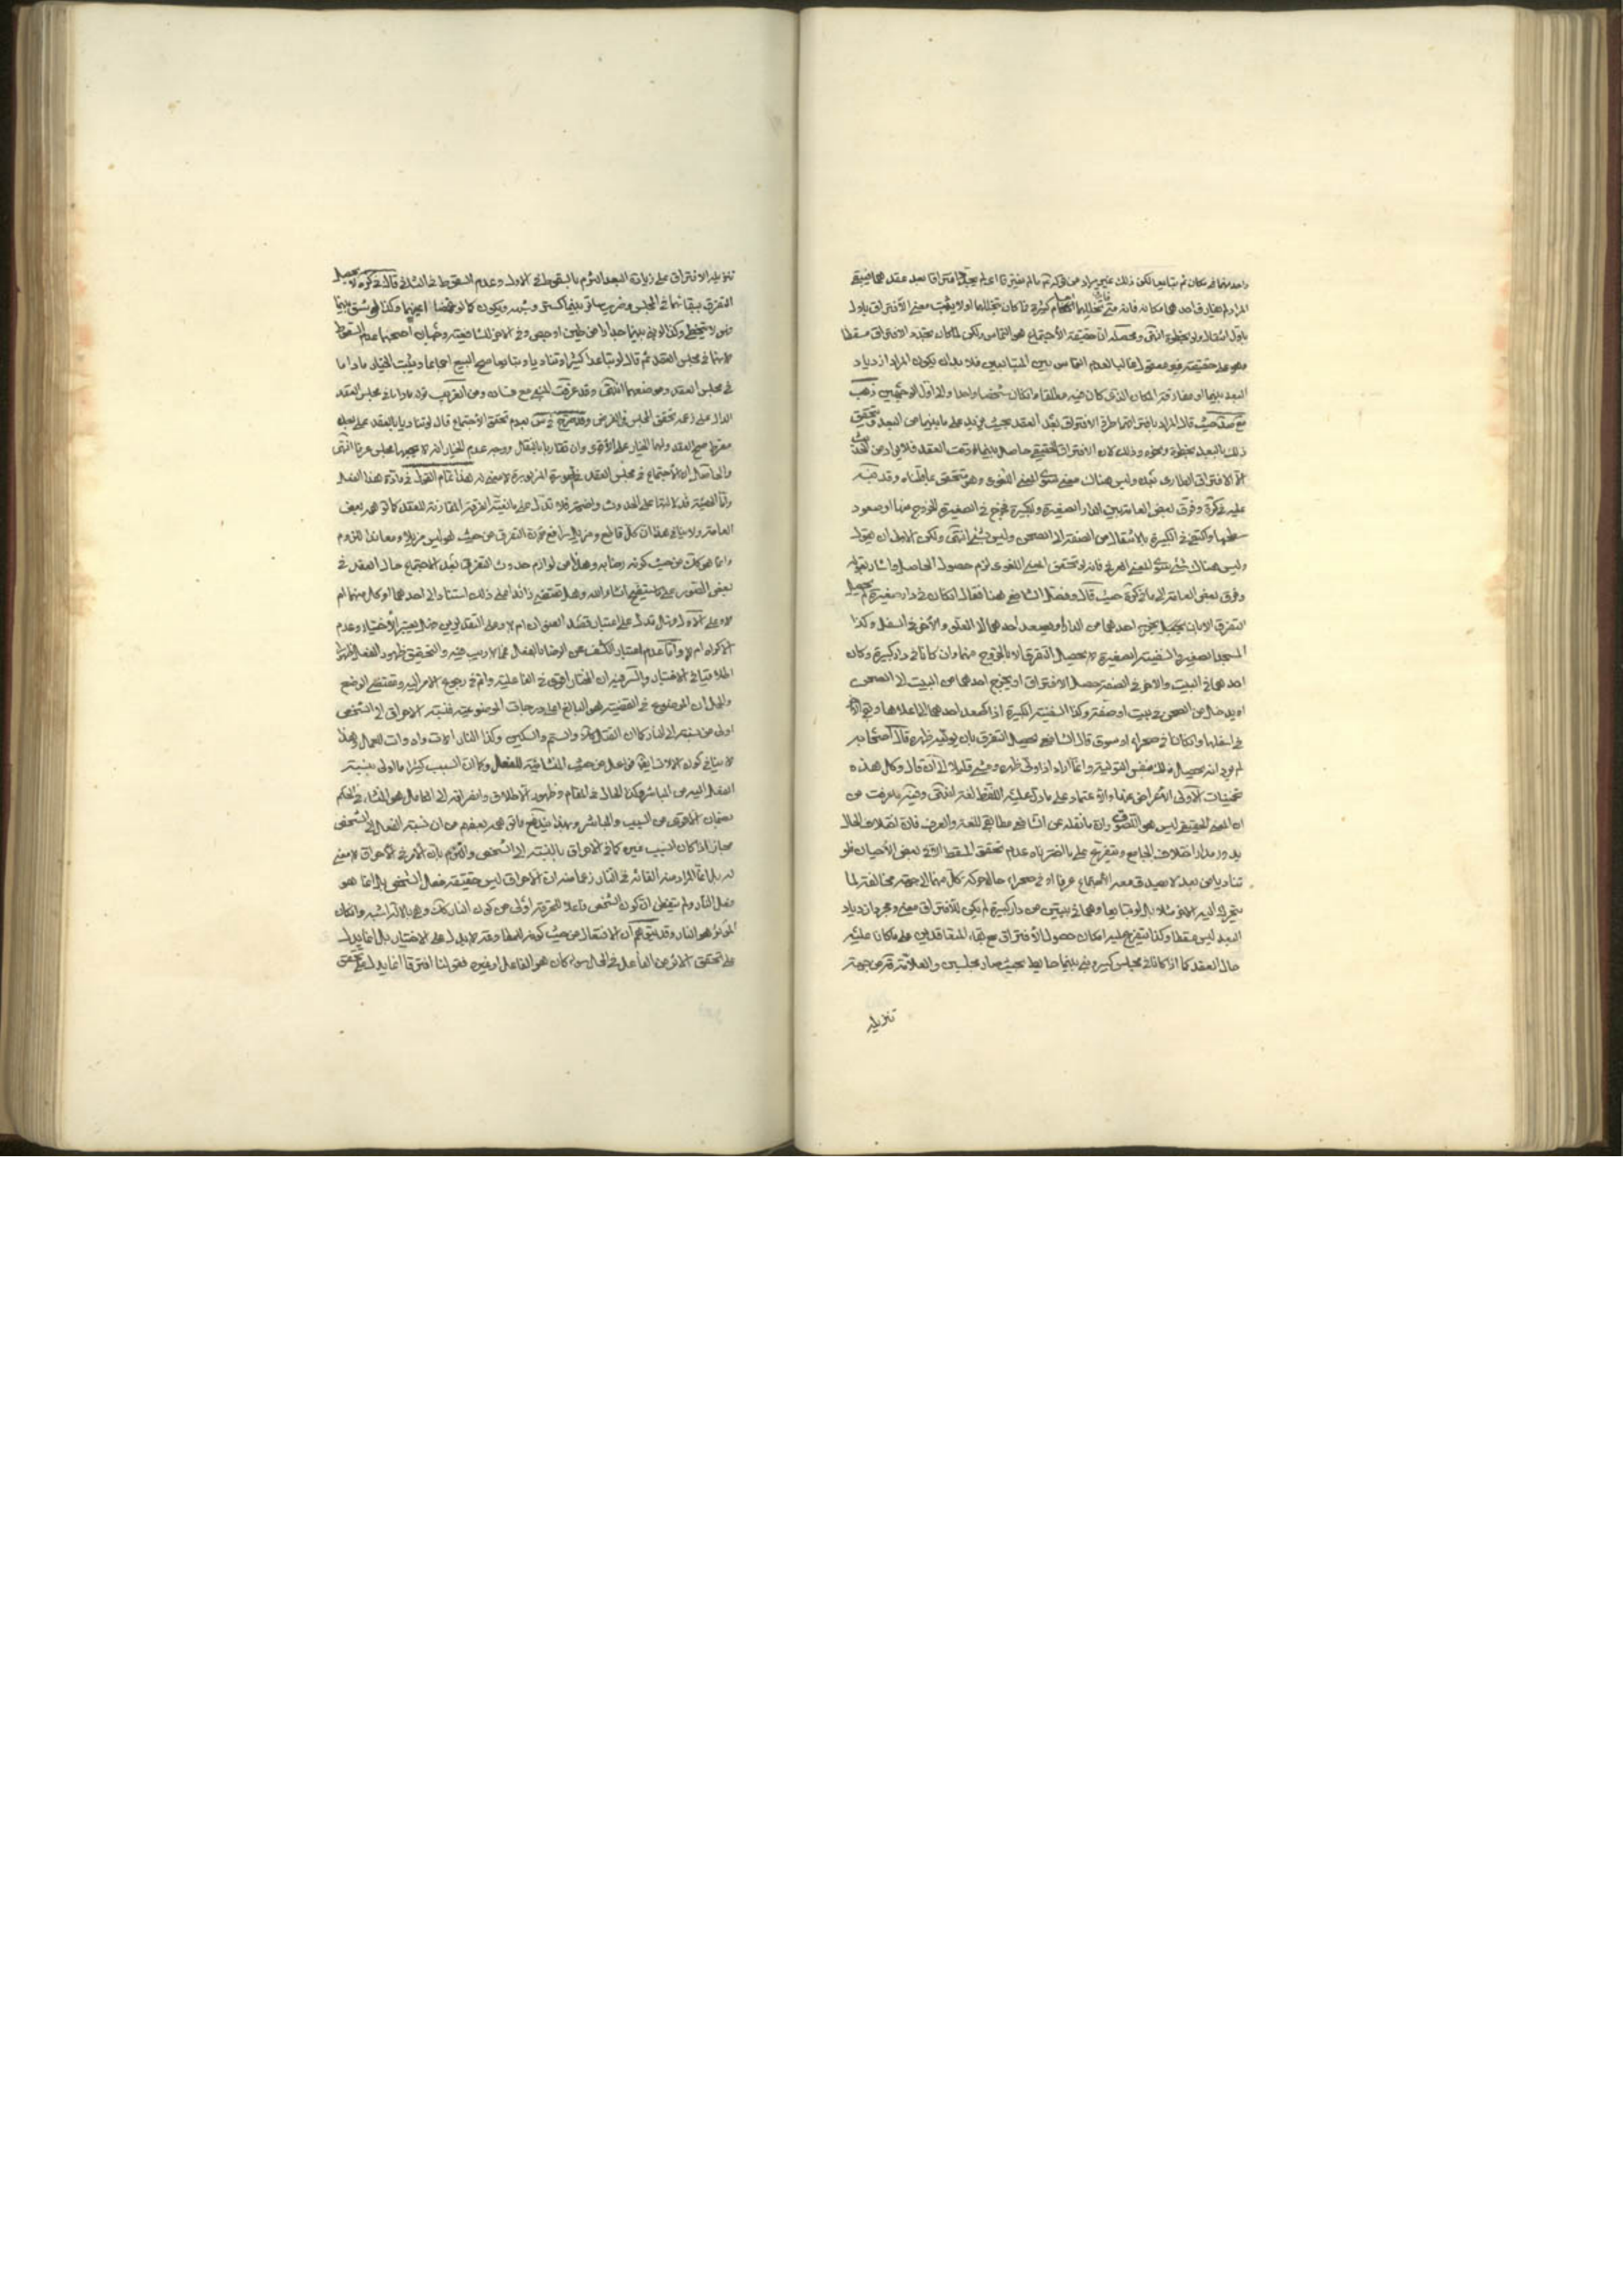 واحد منهما في مكان ثم تبايعا لكن ذلك غير مراد من قوله ما لم يفترقا اعلم بعد افتراقا بعد عقدهما فيبقى
المراد لم يفارق احدهما مكانه فانه متى كثرة ما كان تخللهما اولا يثبت معنى الافتراق باول
باول انتقال ولو بخطوة انتهى ومحصله ان حقيقة الاجتماع هو التماس ولكن لما كان الافتراق مسقطا
وهو على حقيقته غير معقول غالبا لعدم التماس بين المتبايعين فلا بد ان يكون المراد ازدياد
البعد بينهما او مفارقة المكان الذي كان فيه مطلقا وان كان شخصا واحدا والى اول الوجهين ذهب
حيث قال المراد بافتراقهما طرو الافتراق بعد العقد بحيث يزيد على ما بينهما من البعد ويتحقق
ذلك بالبعد بخطوة ونحوه وذلك لان الافتراق الحقيقي حاصل بينهما وقت العقد فلا يراد من الحديث
الا الافتراق الطارئ بعده وليس هناك معنى سوى المعنى اللغوي وهو متحقق بما قلناه وقد نبه
عليه في كره وفرق بعض العامة بين الدار الصغيرة والكبيرة فخرج في الصغيرة الخروج منها او صعود
سطحها واكتفى في الكبيرة بالانتقال من الصفة الى الصحن وليس بشيء انتهى ولكن الاولى ان يقول
وليس هناك شيء سوى المعنى العرفي فانه لو تحقق المعنى اللغوي لزم حصول الحاصل واشار بقوله
وفرق بعض العامة الى ما في كره حيث قال وفصل الشافعي هنا فقال ان كان في دار صغيرة لم يحصل
التفرق الا بان يخرج احدهما من الدار او يصعد احدهما الى العلو والاخر في السفل وكذا
المسجد الصغير والسفينة الصغيرة لا يحصل التفرق الا بالخروج منهما وان كانا في دار كبيرة وكان
احدهما في البيت والاخر في الصفة حصل الافتراق او يخرج احدهما من البيت الى الصحن
او يدخل من الصحن في بيت او صفة وكذا السفينة الكبيرة اذا صعد احدهما الى اعلاها وبقي الاخر
في اسفلها وان كانا في صحراء او سوق قال الشافعي يحصل التفرق بان يوليه ظهره قال اصحابه
لم يرد انه يحصل ذلك بنفس التولية وانما اراد اذا ولى ظهره ومشى قليلا الى ان قال وكل هذه
تخمينات الاولى الاعراض عنها والاعتماد على ما دل عليه اللفظ لغة انتهى وفيه ما عرفت من
ان المعنى الحقيقي ليس هو اللغوي وان ما نقله عن الشافعي مطابق للغة والعرف فان اختلاف الحال
يدور مدار اختلاف الجامع ويتفرع على ما اخترناه عدم تحقق المسقط في بعض الاحيان فلو
تناديا من بعد لا يصدق معه الاجتماع عرفا او في صحراء حال حركة كل منهما الى جهة مخالفة لما
يتحرك اليه الاخر مثلا بل لو تبايعا وهما في بيتين من دار كبيرة لم يكن للافتراق معنى ومجرد ازدياد
البعد ليس مسقطا وكذا يتفرع عليه امكان حصول الافتراق مع بقاء المتعاقدين على ما كانا عليه
حال العقد كما اذا كانا في مجلس كبير وبني بينهما حايط بحيث صار مجلسين والعلامة قده من جهة
تنزيله
تنزيله الافتراق على زيادة البعد التزم بالسقوط في الاول وعدم السقوط في الثاني قال في كره لا يحصل
التفرق ببقائهما في المجلس وضرب ساتر بينهما كستر وشبهه ويكون كما لو غمضا اعينهما وكذا لو شق بينهما
نهر لا يتخطى وكذا لو بني بينهما جدار من طين او جص وفي الاخر للشافعية وجهان اصحهما عدم السقوط
لانهما في مجلس العقد ثم قال لو تباعدا كثيرا وتناديا وتبايعا صح البيع اجماعا ويثبت الخيار ما داما
في مجلس العقد وموضعهما انتهى وقد عرفت المبنى مع فساده ومن الغريب قوله ما داما في مجلس العقد
الدال على زعمه تحقق المجلس في الفرض وقد صرح في بعدم تحقق الاجتماع قال لو تناديا بالعقد على بعد
مفرط صح العقد ولهما الخيار على الاقوى وان تقاربا بالتنقل ووجه عدم الخيار انه لا يجمعهما مجلس عرفا انتهى
والحاصل ان الاجتماع في مجلس العقد في الصورة المزبورة لا معنى له هذا تمام القول في مادة هذا الفعل
واما الهيئة فدلالتها على الحدوث واضحة فلا تدل على مانعية الفرقة المقارنة للعقد كما توهمه بعض
العامة ولا ينافي هذا ان كل قاطع ومزيل رافع فان التفرق من حيث هو ليس مزيلا ومعاندا للزوم
وانما هو كك من حيث كونه رضا به وهذا من لوازم حدوث التفرق بعد الاجتماع حال العقد في
بعض الصور على ما سيتضح انشاء الله وهل تقتضي زائدا على ذلك استناده الى احدهما او كل منهما ام
لا وعلى الاول فهل تدل على اعتبار قصد العنوان ام لا وعلى التقديرين هل يعتبر الاختيار وعدم
الاكراه ام لا واما عدم اعتبار الكشف عن الرضا بالفعل فمما لا ريب فيه والتحقيق ظهور الفعل ظهورا
اطلاقيا في الاختيار والسر فيه ان المختار اقوى في الفاعلية واتم في رجوع الامر اليه ومقتضى الوضع
والحمل ان الموضوع في القضية هو البالغ اعلى درجات الموضوعية فنسبة الاحراق الى الشخص
اولى من نسبته الى النار كما ان القتل والسم والسكين وكذا النار الات وادوات للعمال وهذا
لا ينافي كون الالات ايضا فواعل من حيث المنشائية للفعل وكما ان السبب كثيرا ما اولى بنسبة
الفعل اليه من المباشر فكذا الحال في المقام وظهور الاطلاق وانصرافه الى الكامل هو المنشاء في الحكم
بضمان الاقوى من السبب والمباشر وبهذا يندفع ما توهمه بعضهم من ان نسبة الفعل الى الشخص
مجاز اذا كان السبب غيره كما في الاحراق بالنسبة الى الشخص والتزم بان الامر في الاحراق لا معنى
له بل انما المراد منه القائه في النار زعما منه ان الاحراق ليس حقيقة فعل الشخص بل انما هو
فعل النار ولم يتفطن ان كون الشخص فاعلا للحرقة اولى من كون النار كك وهي بالالة اشبه وان كان
المؤثر هو النار وقد سبق منهم ان الانتقال من حيث كونه فعلا وقد لا يدل على الاختيار بل انما يدل
على تحقق الاثر من الفاعل في الحال سواء كان هو الفاعل او غيره فقولنا افترقا انما يدل على تحقق